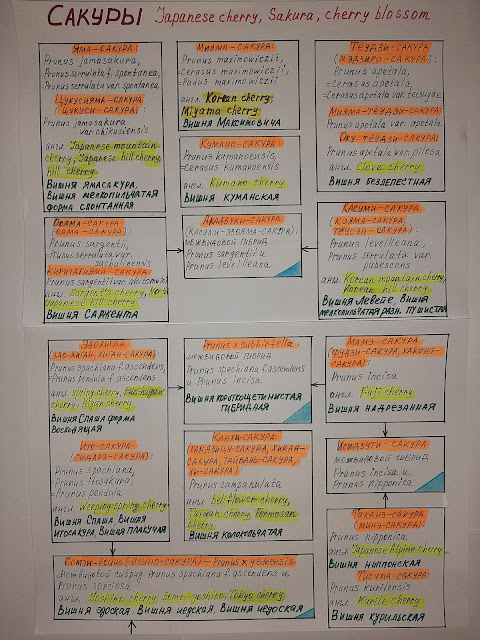 САКУРЫ Japanese cherry, Sakura, cherry blossom
ЯМА-САКУРА:
Prunus jamasakura,
=Prunus serrulata f. spontanea,
=Prunus serrulata var. spontanea
ЦУКУСИЯМА-САКУРА
(ЦУКУСИ-САКУРА):
Prunus jamasakura
var. chikusiensis
англ. Japanese mountain
cherry, Japanese hill cherry,
hill cherry
ВИШНЯ ЯМАСАКУРА,
ВИШНЯ МЕЛКОПИЛЬЧАТАЯ
ФОРМА СПОНТАННАЯ
МИЯМА-САКУРА:
Prunus maximowiczii,
=Cerasus maximowiczii,
=Padus maximowiczii
англ. Korean cherry,
Miyama cherry
ВИШНЯ МАКСИМОВИЧА
КУМАНО-САКУРА:
Prunus kumanoensis,
=Cerasus kumanoensis
англ. Kumano cherry
ВИШНЯ КУМАНСКАЯ
ТЁДЗИ-САКУРА
(МЭДЗИРО-САКУРА):
Prunus apetala,
=Cerasus apetala,
=Cerasus apetala var. tetsuyae
МИЯМА-ТЁДЗИ-САКУРА:
Prunus apetala var. apetala
ОКУ-ТЁДЗИ-САКУРА:
Prunus apetala var. pilosa
англ. Clove cherry
ВИШНЯ БЕЗЛЕПЕСТНАЯ
Prunus sargentii,
=Prunus serrulata
var. sachalinensis
КИРИТАТИЯМА-САКУРА:
Prunus sargentii var. akimotoi
англ. Sargent's cherry, North
Japanese hill cherry
ВИШНЯ САРЖЕНТА
АКАДЗУКИ-САКУРА
(КАСУМИ-ЭВОЯМА-САКУРА):
межвидовой гибрид
Prunus sargentii и
Prunus leveilleana
КАСУМИ-САКУРА
(КЭЯМА-САКУРА,
ТЁУСЭН-САКУРА):
Prunus leveilleana,
=Prunus serrulata var.
pubescens
англ. Korean mountain cherry,
Korean hill cherry
ВИШНЯ ЛЕВЕЙЕ, ВИШНЯ
МЕЛКОПИЛЬЧАТАЯ РАЗН. ПУШИСТАЯ
ЭДОХИГАН
(ЭДО-ХИГАН, ХИГАН-САКУРА):
Prunus spachiana f. ascendens,
=Prunus pendula f. ascendens
англ. spring cherry, Edo higan
cherry, Higan cherry
ВИШНЯ СПАША ФОРМА
ВОСХОДЯЩАЯ
Prunus x subhirtella
межвидовой гибрид
Prunus spachiana f. ascendens
и Prunus incisa
ВИШНЯ КОРОТКОЩЕТИНИСТАЯ
ГИБРИДНАЯ
МАМЭ-САКУРА
(ФУДЗИ-САКУРА, ХАКОНЭ-
САКУРА):
Prunus incisa
англ. Fuji cherry
ВИШНЯ НАДРЕЗАННАЯ
ИТО-САКУРА
(СИДАРЭ-САКУРА):
Prunus spachiana,
Prunus itosakura,
=Prunus pendula
англ. Weeping spring cherry
ВИШНЯ СПАША, ВИШНЯ
ИТОСАКУРА, ВИШНЯ ПЛАКУЧАЯ
КАНХИ-САКУРА:
Prunus campanulata
англ. bellflower cherry,
Taiwan cherry, Formosan
cherry
ВИШНЯ КОЛОКОЛЬЧАТАЯ
ИСИДЗУТИ-САКУРА
межвидовой гибрид
Prunus incisa и
Prunus nipponica
ТАКАНЭ-САКУРА
(МИНЭ-САКУРА):
Prunus nipponica
англ. Japanese Alpine cherry
ВИШНЯ НИППОНСКАЯ
ТИСИМА-САКУРА:
Prunus kurilensis
англ. Kurile cherry
ВИШНЯ КУРИЛЬСКАЯ
СОМЭЙ-ЁСИНО (ЁСИНО-САКУРА) - Prunus x yedoensis
межвидовой гибрид Prunus spachiana f. ascendens и
Prunus speciosa
англ. Yoshino cherry, Somei-yoshino, Tokyo cherry
ВИШНЯ ЭДОСКАЯ, ВИШНЯ ИЕДСКАЯ, ВИШНЯ ИЕДОСКАЯ